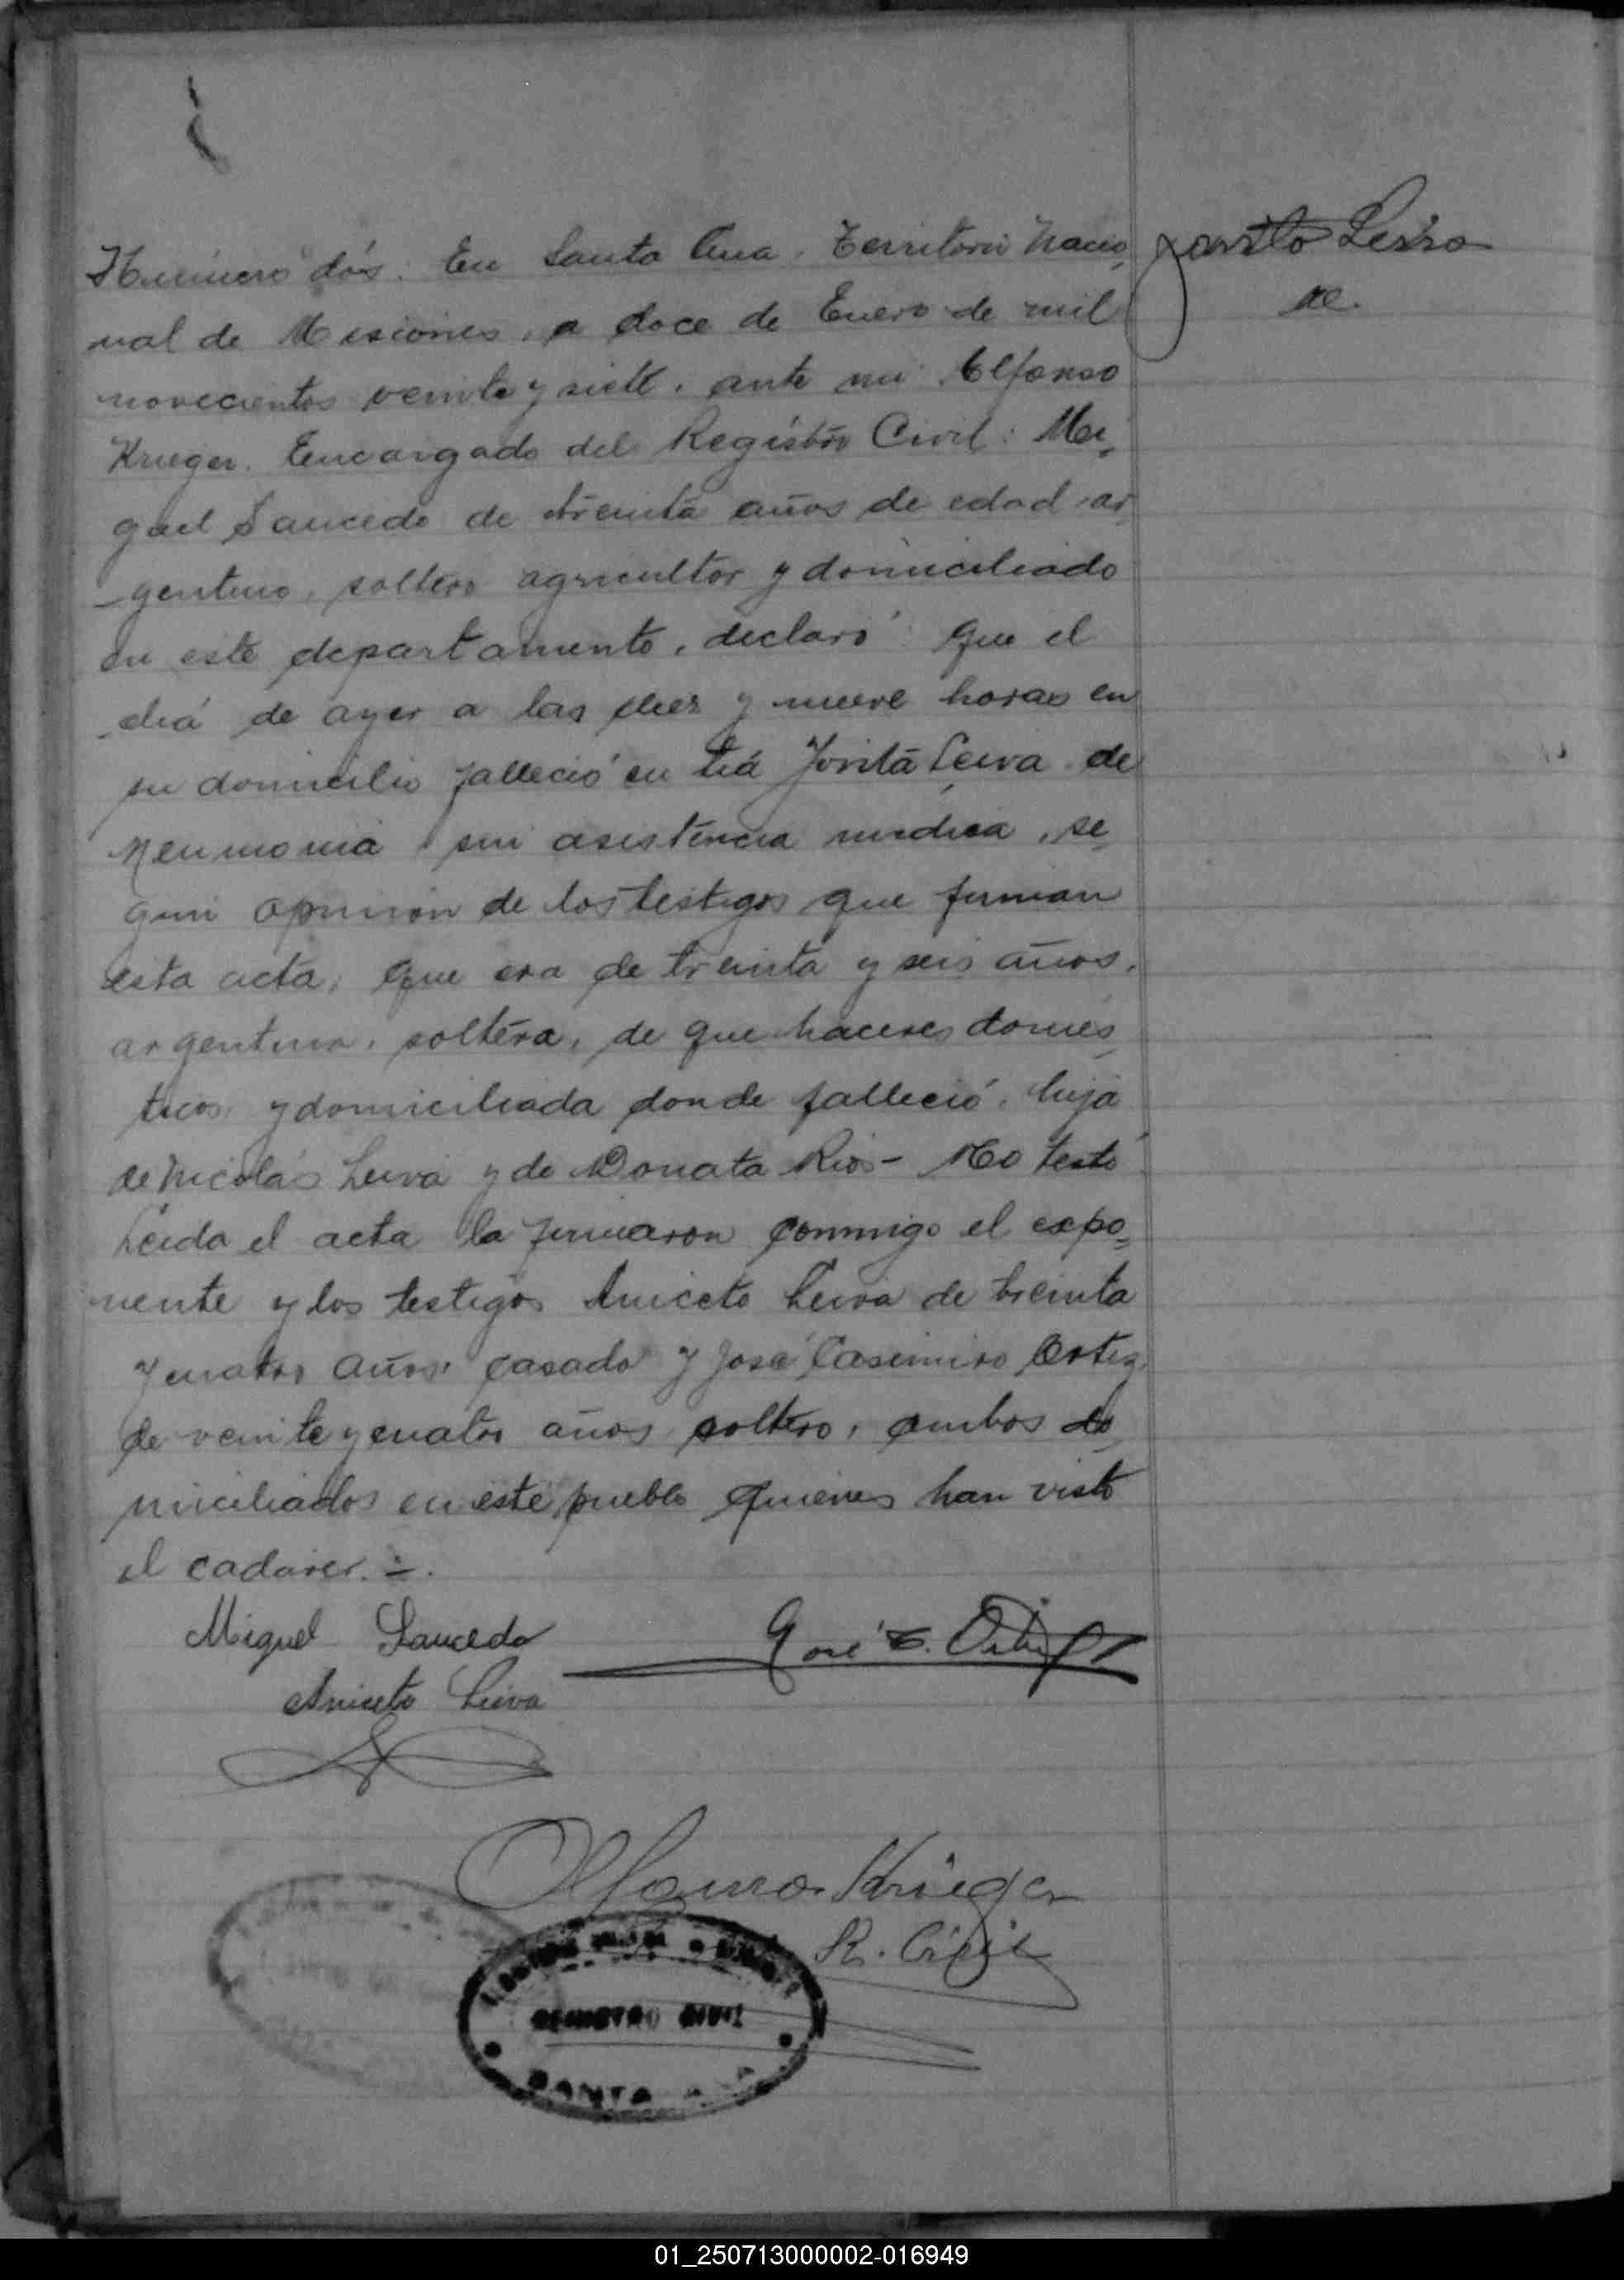 Número dós. En Santa Ana. Territorio Nacio
nal de Misiones, a doce de Enero de mil
novecientos veinte y siete, ante mi Alfonso
Krieger. Encargado del Registro Civil: Mi
guel Saucedo de treinta años de edad ar
gentino, soltero agricultor y domiciliado
en este departamento, declaró: Que el
diá de ayer a las diez y nueve horas en
su domicilio falleció su tiá Jovita Leiva de
Neumonia sin asistencia medica, se
gun opinion de los testigos que firman
esta acta; Que era de treinta y seis años,
argentina, soltera, de que haceres domes
ticos, y domiciliada donde falleció, hija
de Nicolás Leiva y de Donata Rios - No testó
Leida el acta la firmaron conmigo el expo=
nente y los testigos Aniceto Leiva de treinta
y cuatro años, casado y José Casimiro Ortiz,
de veinte y cuatro años soltero, ambos do
miciliados en este pueblo quienes han visto
el cadaver. =.
Jovita Leiva
Miguel Saucedo
José C. Ortiz
Aniceto Leiva
Alfonso Krieger
R. Civil
REGISTRO CIVIL
SANTA
01_250713000002-016949